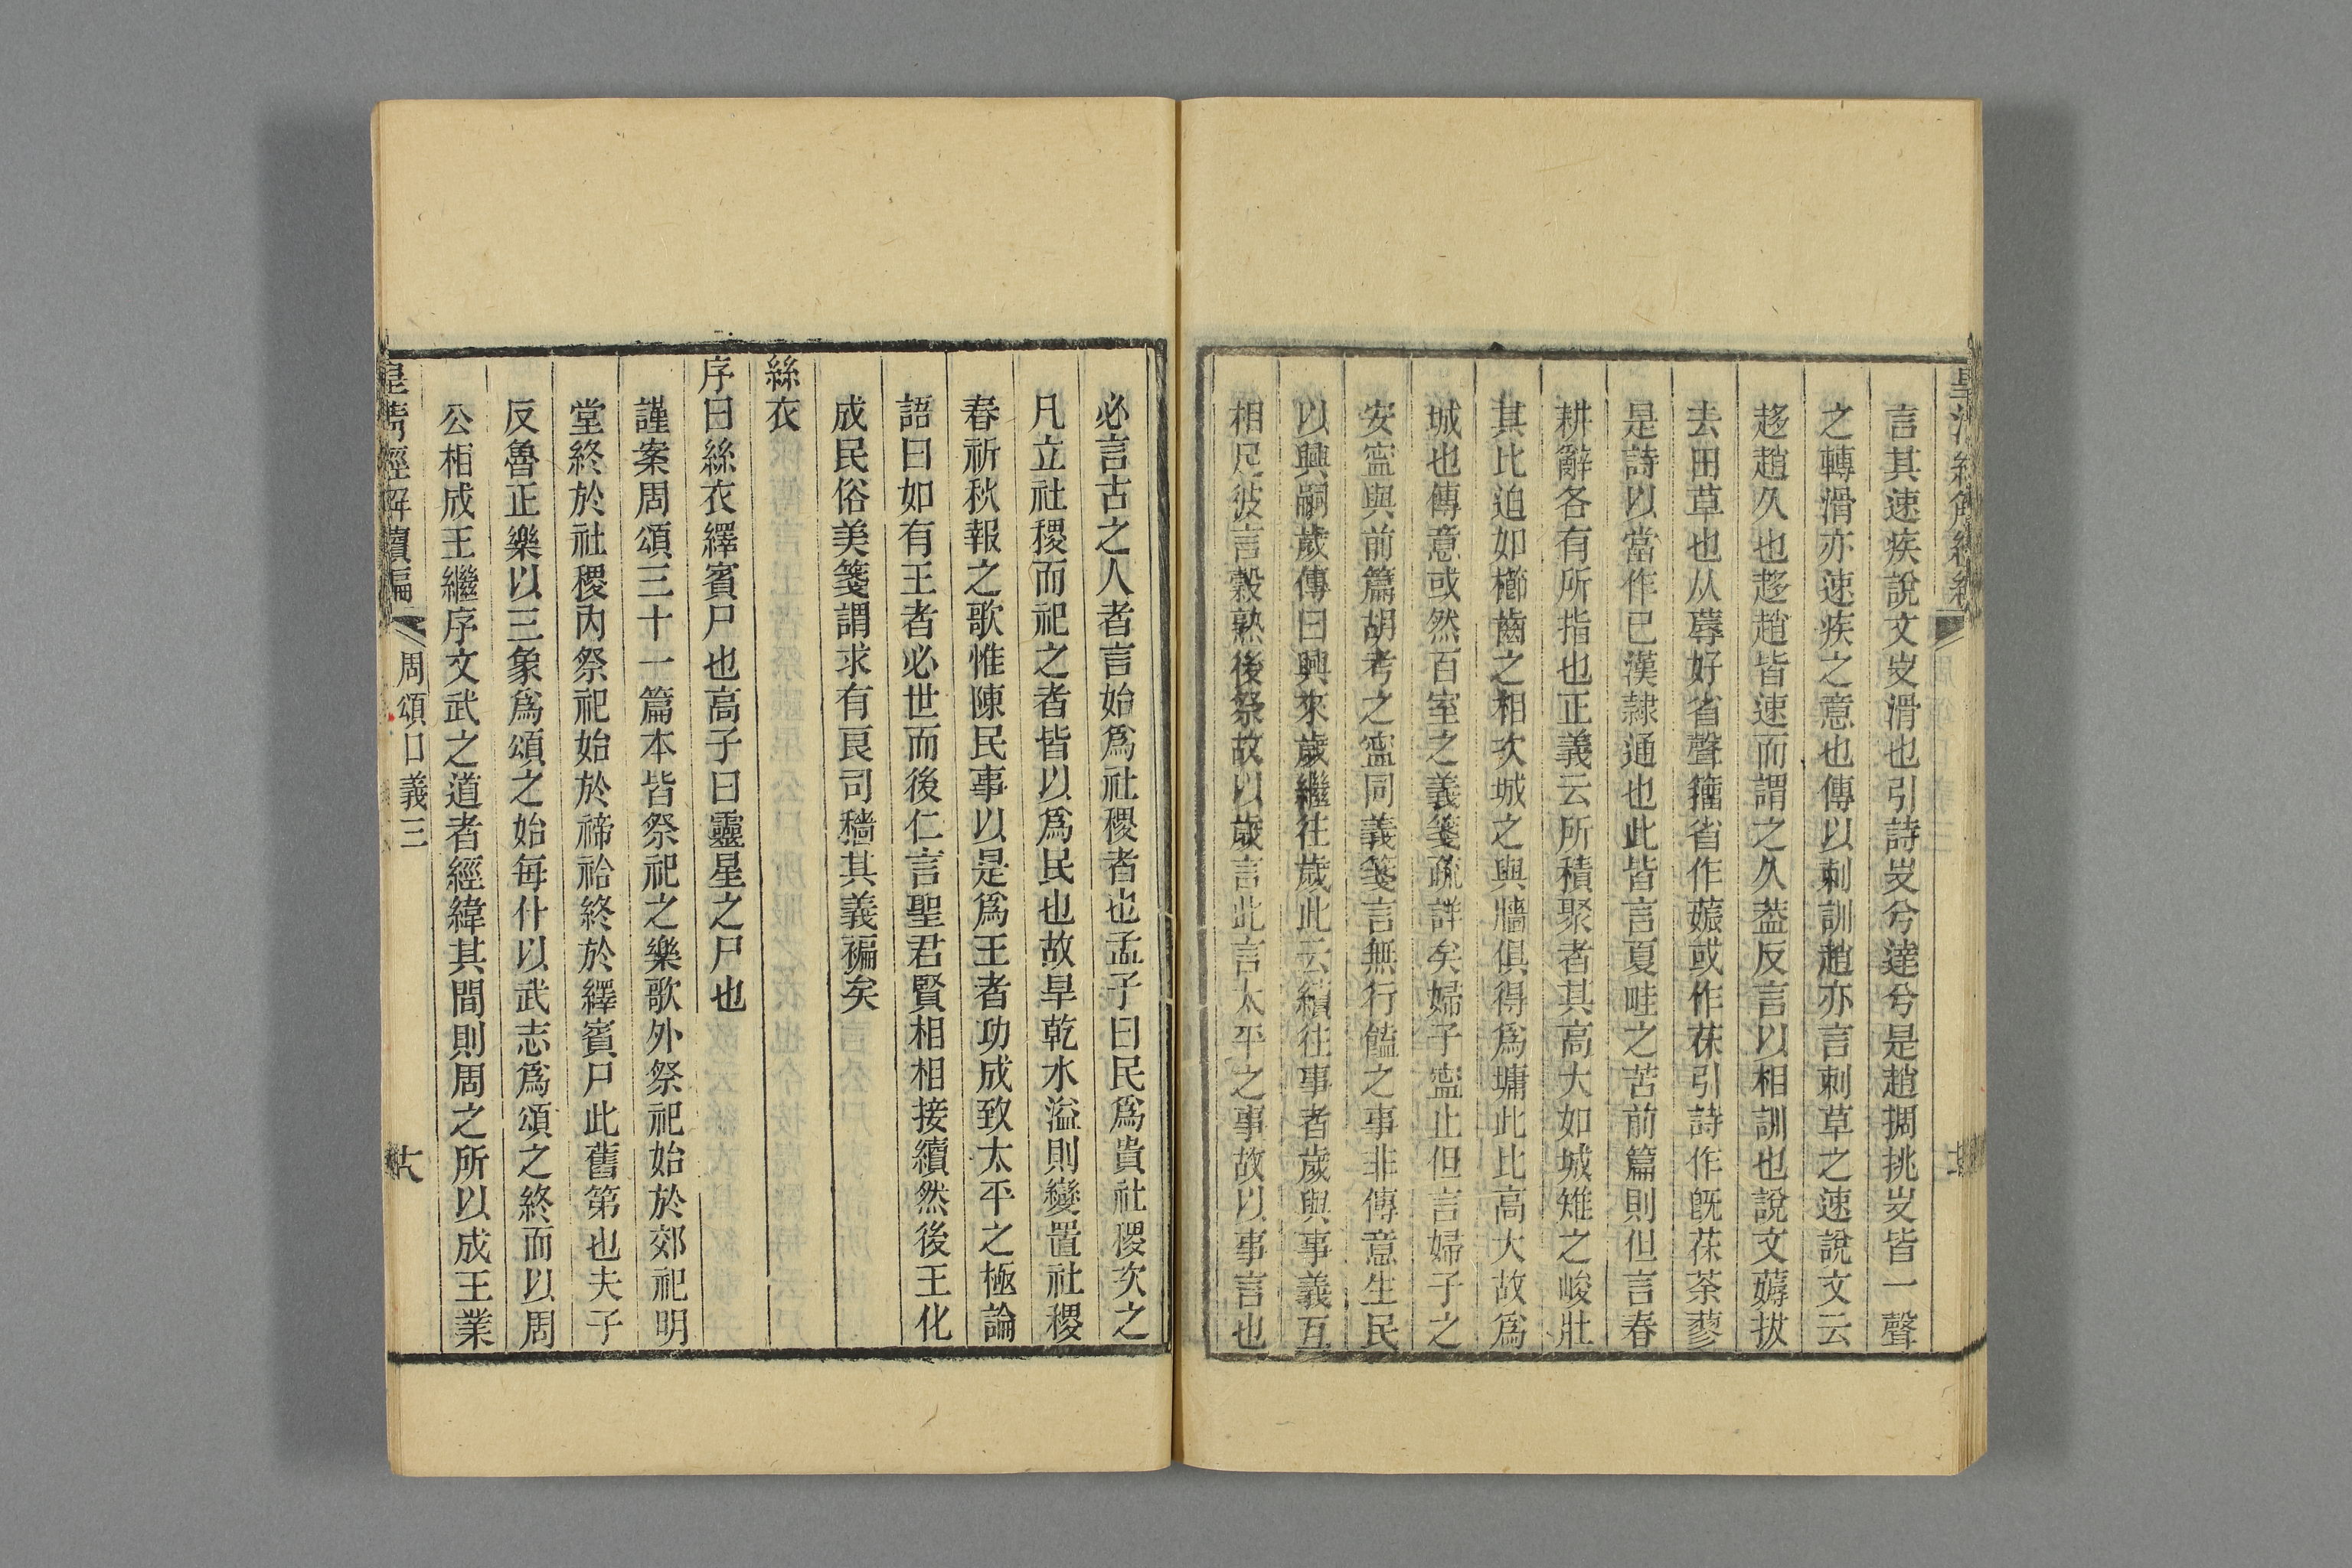 言其速疾說文㕞滑也引詩㕞兮達兮是趙搁挑㕞皆一聲
之轉滑亦速疾之意也傳以刺訓趙亦言刺草之速說文云
趍趙久也趍趙皆速而謂之久葢反言以相訓也說文薅拔
去田草也从蓐好省聲籀省作薅或作茠引詩作既茠荼蓼
是詩以當作已漢隷通也此皆言夏畦之苦前篇則但言春
耕辭各有所指也正義云所積聚者其高大如城雉之峻壯
其比迫如櫛齒之相次城之與牆俱得爲墉此比高大故爲
城也傳意或然百室之義箋疏詳矣婦子寍止但言婦子之
安寍與前篇胡考之寍同義箋言無行饁之事非傳意生民
以興嗣歲傳曰興來歲繼往歲此云續往事者歲與事義互
相足彼言穀熟後祭故以歲言此言太平之事故以事言也
必言古之人者言始爲社稷者也孟子曰民爲貴社稷次之
凡立社稷而祀之者皆以爲民也故旱乾水溢則變置社稷
春祈秋報之歌惟陳民事以是爲王者功成致太平之極論
語曰如有王者必世而後仁言聖君賢相相接續然後王化
成民俗美箋謂求有良司穡其義褊矣
絲衣
序曰絲衣繹賓尸也高子曰靈星之尸也
謹案周頌三十一篇本皆祭祀之樂歌外祭祀始於郊祀明
堂終於社稷内祭祀始於禘祫終於繹賓尸此舊第也夫子
反魯正樂以三象爲頌之始每什以武志爲頌之終而以周
公相成王繼序文武之道者經緯其間則周之所以成王業
皇清經解續編
周頌口義三
六